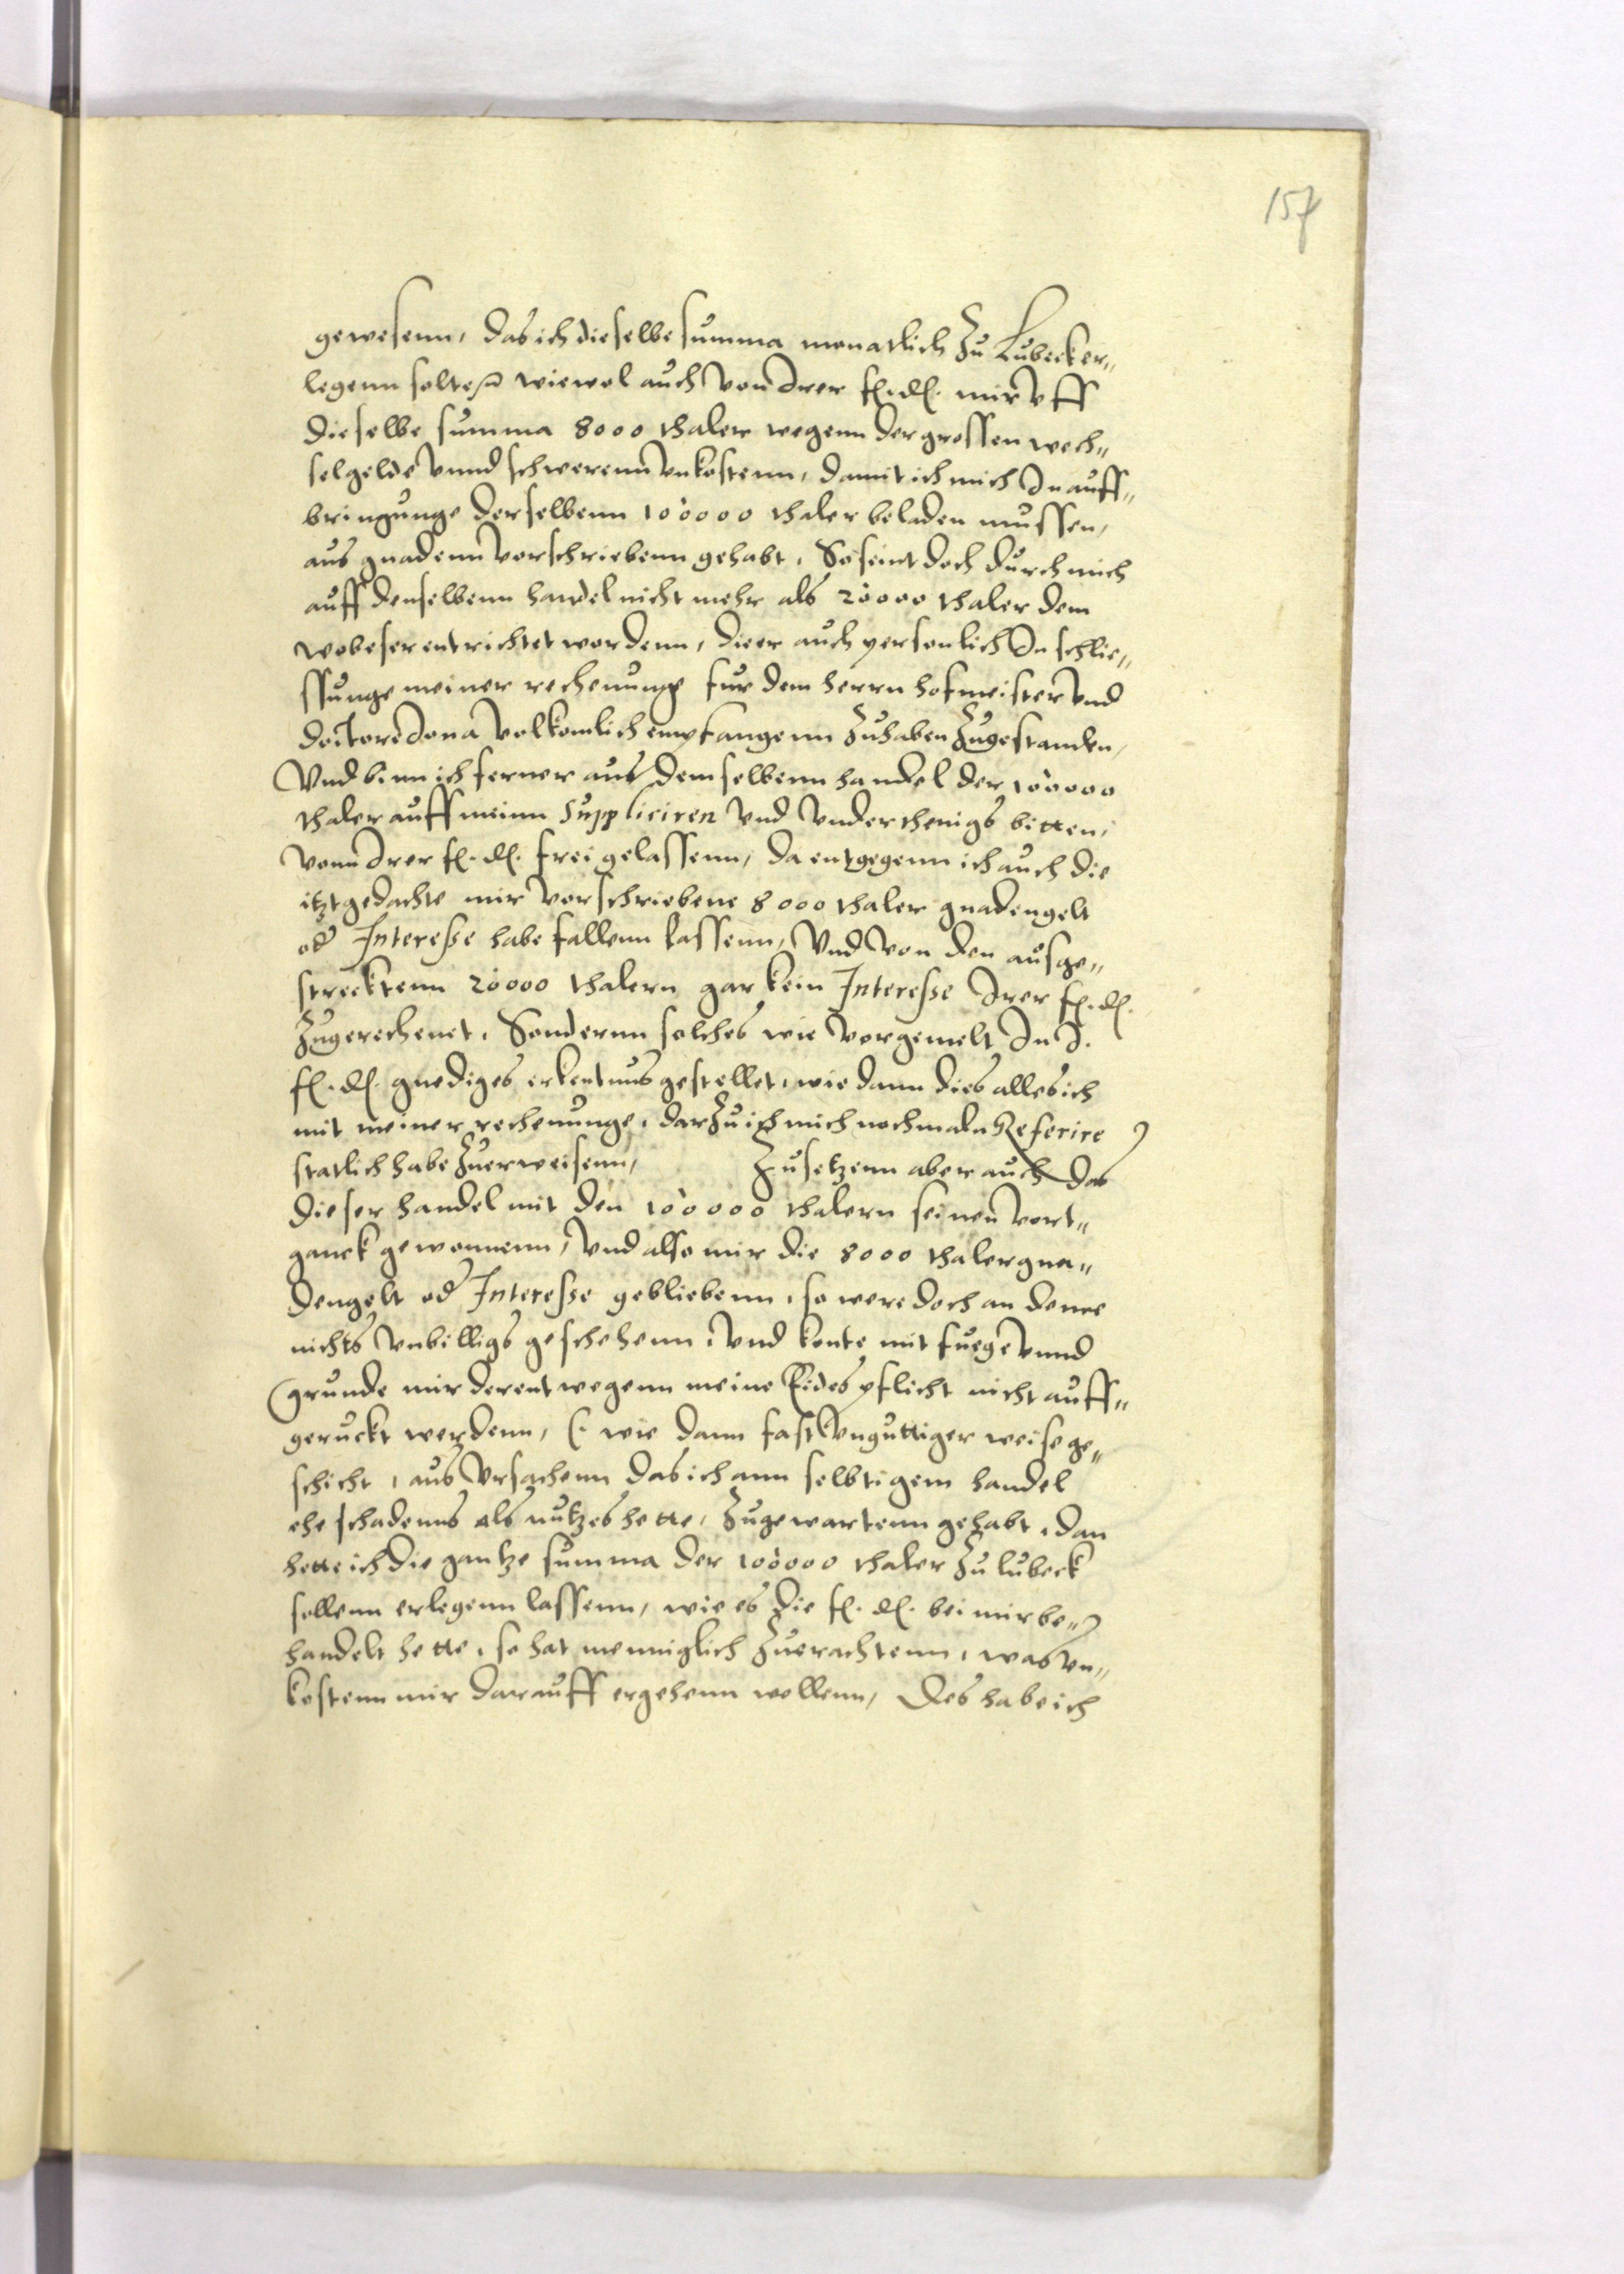 157
gewesenn, das ich dieselbe summa monatlich zu Lubeck er„
legenn solte, wiewol auch von Irer f. d. mir vff
dieselbe summa 8000 thaler wegenn der grossen wech„
selgelde vnnd schwerenn vnkostenn, damit ich mich In auff„
bringunge derselbenn 100000 thaler beladen mussen,
aus gnadenn vorschriebenn gehabt, So seint doch durch mich
auff denselbenn handel nicht mehr als 20000 thaler dem
wobeser entrichtet wordenn, die er auch personlich In schlie„
ssunge meiner rechenunge fur dem herrn hofmeister vnd
doctore Jona volkomlich empfangenn zuhaben zugestanden,
Vnd binn ich ferner aus demselbenn handel der 100000
thaler auff meinn Suppliciren vnd vnderthenigs bitten,
vonn Irer f. d. frei gelassenn, da entgegenn ich auch die
itztgedachte mir vorschriebene 8000 thaler gnadengelt
od Interesse habe fallenn lassenn, Vnd von den ausge„
strecktenn 20000 thalern gar kein Interesse Irer f. d.
zugerechenet, Sondernn solches wie vorgemelt In I.
f. d. gnediges erkentnus gestellet, wie dann dies alles ich
mit meiner rechenunge, darzu ich mich nochmaln Referire
statlich habe zuerweisenn, Zusetzenn aber auch das
dieser handel mit den 100000 thalern seinen vort„
ganck gewonnenn, Vnd also mir die 8000 thaler gna„
dengelt od Interesse gebliebenn, so were doch an deme
nichts vnbilligs geschehenn, Vnd konte mit fuege vnnd
grunde mir derentwegenn meine Eides pflicht nicht auff„
geruckt werdenn, (: wie dann fast vnguttiger weise ge„
schicht, aus vrsachenn das ich ann selbtigem handel
ehe schadenns als nutzes hette, zugewartenn gehabt, dan
hette ich die gantze summa der 100000 thaler zu lubeck
sollenn erlegenn lassenn, wie es die f. d. bei mir be„
handelt hette, so hat menniglich zuerachtenn, was vn„
kostenn mir darauff ergehenn wollenn, Des habe ich